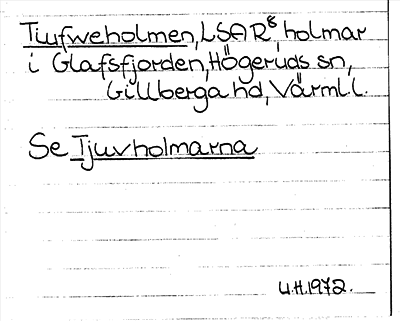 Tiufweholmen, LSAR⁸, holmar
i Glafsfjorden, Högeruds sn,
Gillberga hd, Värml.l.
Se Tjuvholmarna
U.H.1972.